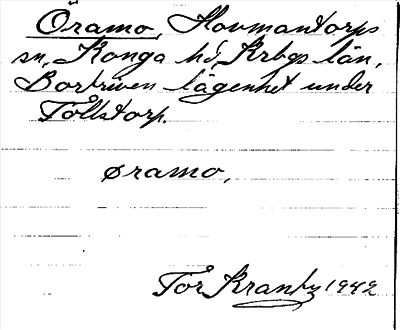 Öramo, Hovmantorps
sn, Konga hd, Krbgs län.
Bortriven lägenhet under
Tollstorp.
øramo,
Tor Kranby 1942